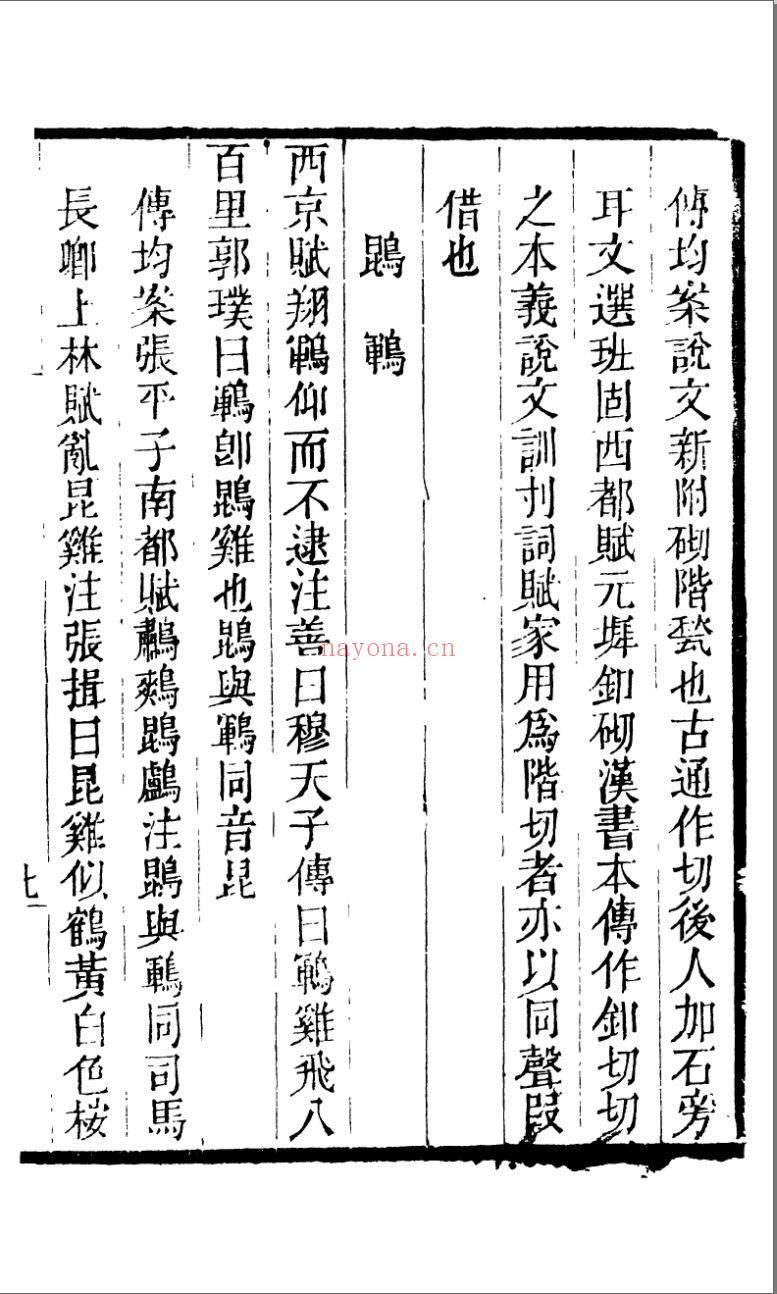 傅均案說文新附砌階甃也古通作切後人加石旁
耳文選班固西都賦元墀釦砌漢書本傳作釦切切
之本義說文訓刌詞賦家用爲階切者亦以同聲叚
借也
鵾鶤
西京賦翔鶤仰而不逮注善曰穆天子傳曰鶤雞飛八
百里郭璞曰鶤卽鵾雞也鵾與鶤同音昆
傅均案張平子南都賦鷫鷞鵾鸕注鵾與鶤同司馬
長卿上林賦亂昆雞注張揖曰昆雞似鶴黃白色桉
七
nayona.cn